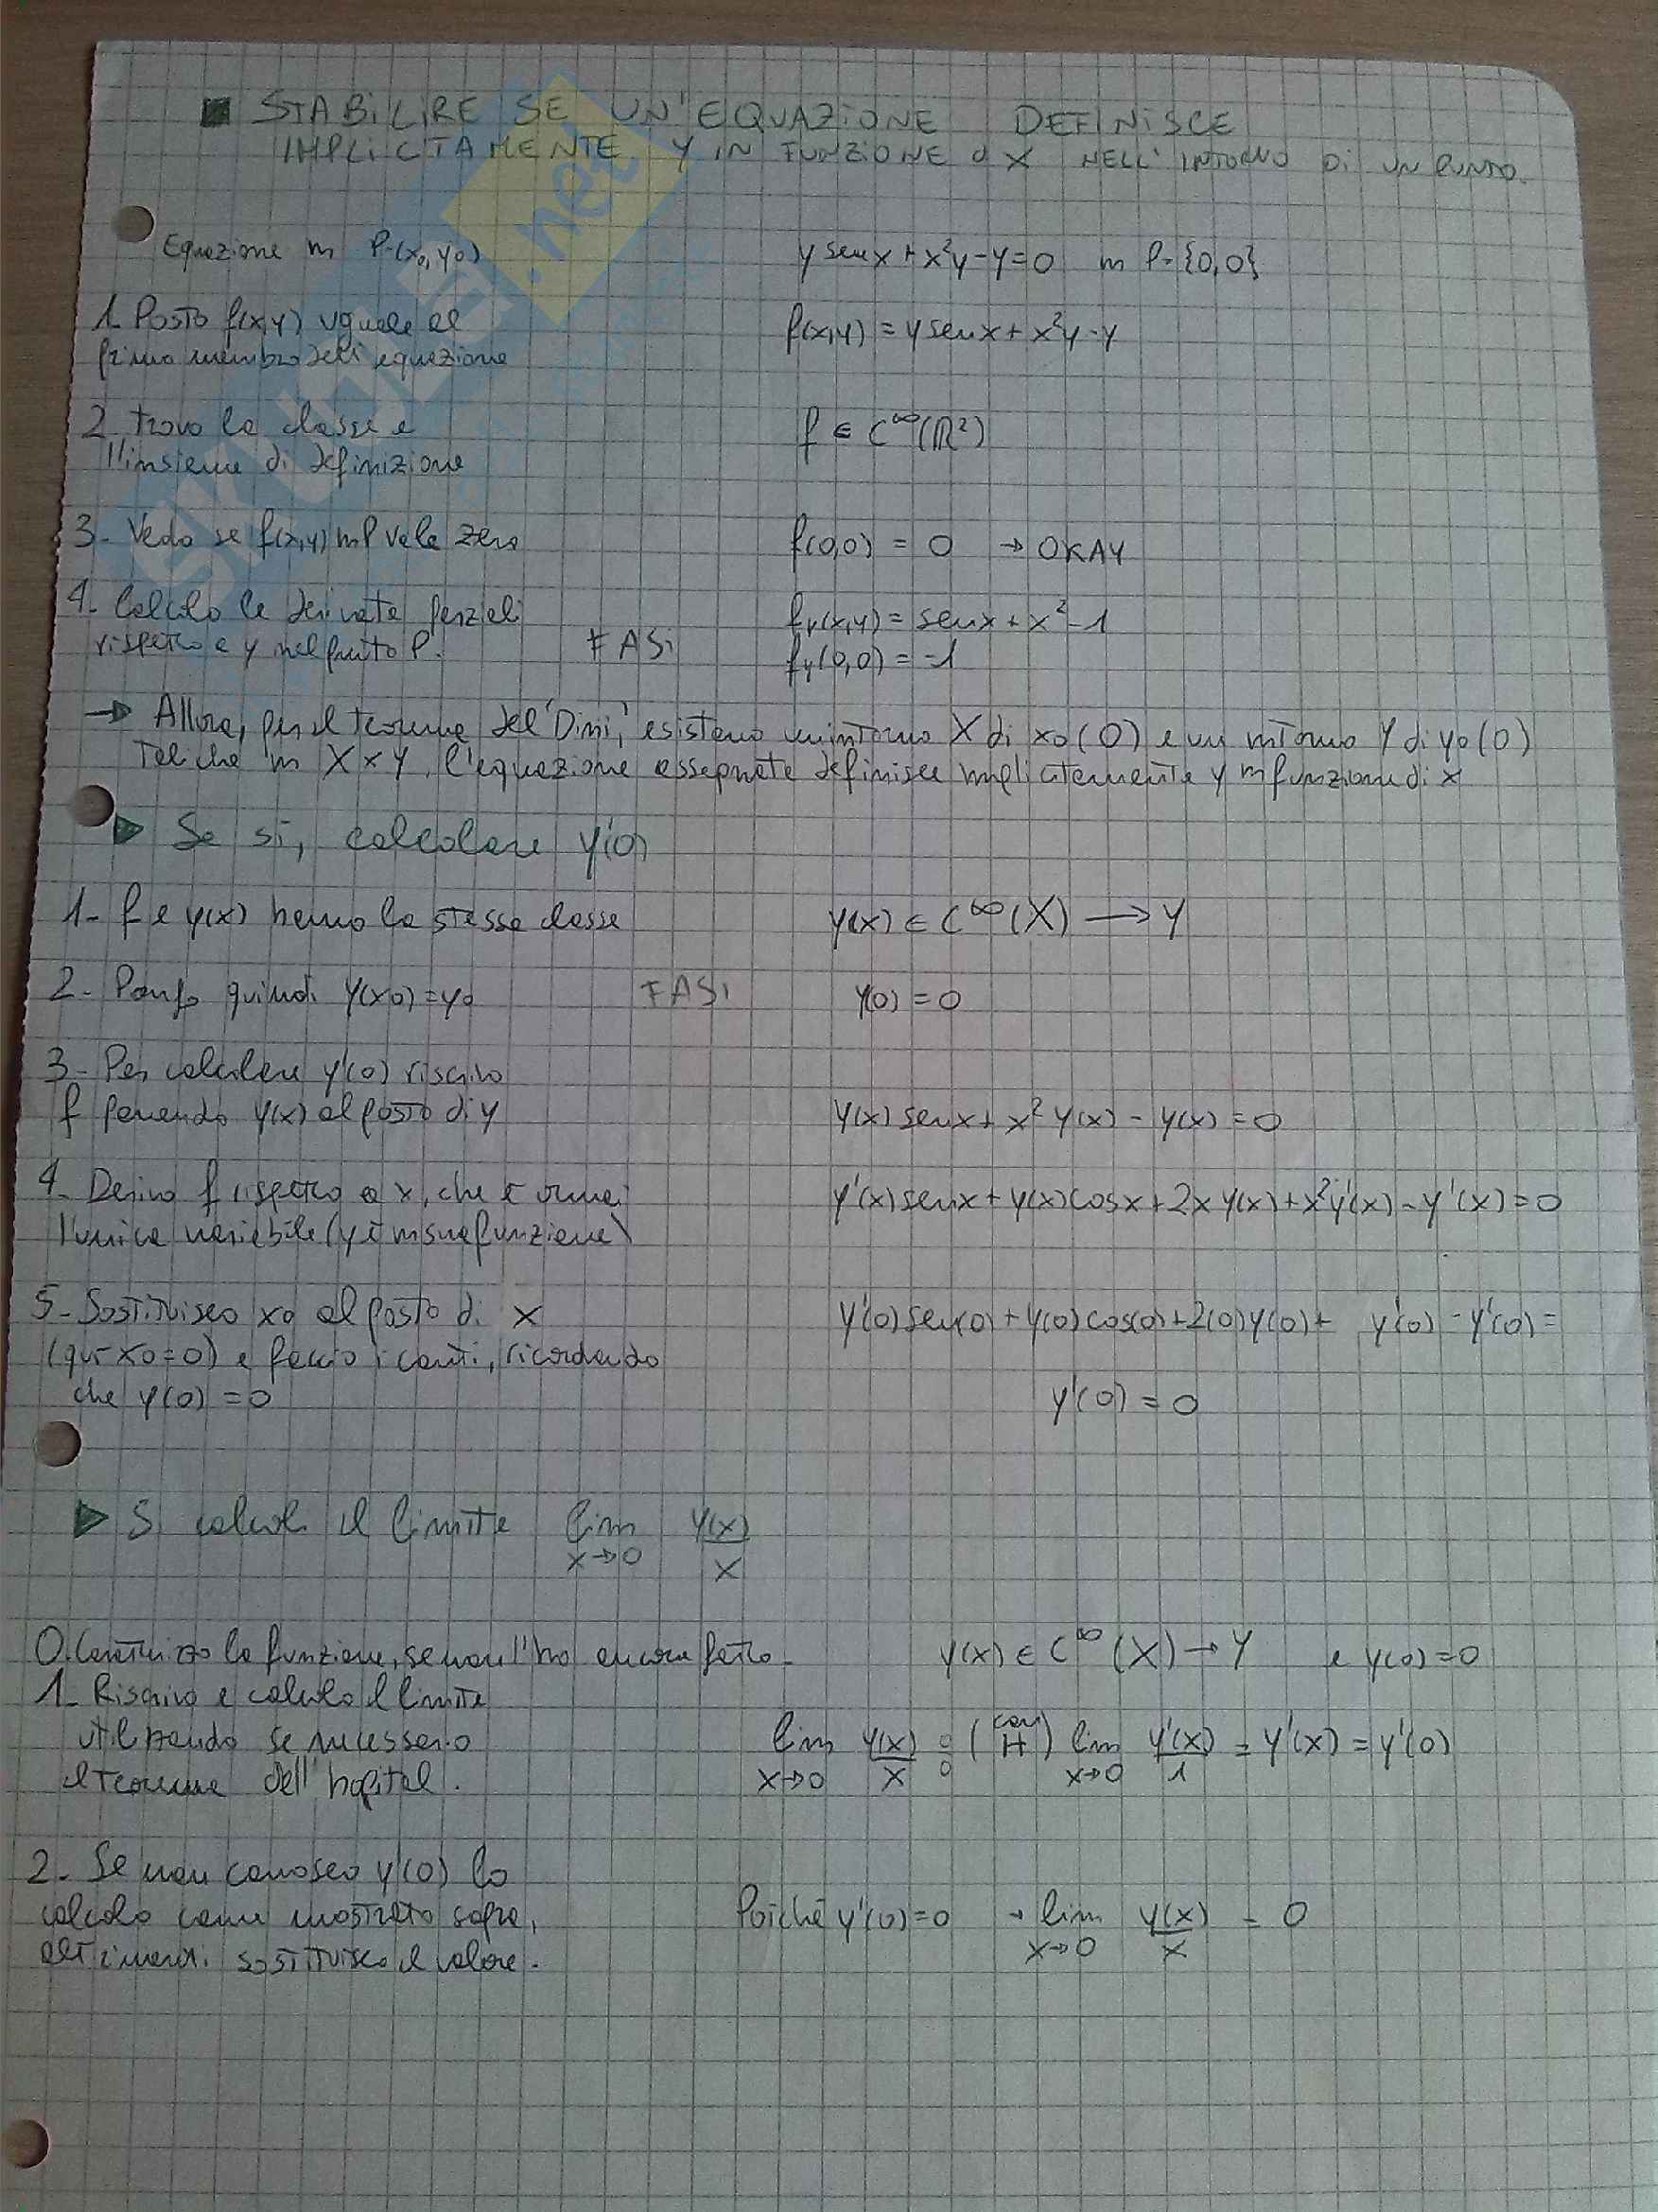 STABILIRE SE UN'EQUAZIONE DEFINISCE
IMPLICITAMENTE Y IN FUNZIONE d X NELL'INTORNO DI UN PUNTO.
Equazione in P=(x₀, y₀)
y senx + x²y - y = 0 in P={0,0}
1- Posto f(x,y) uguale al
primo membro dell'equazione
f(x,y) = y senx + x²y - y
2- Trovo la classe e
l'insieme di definizione
f ∈ C^∞(ℝ²)
3- Vedo se f(x,y) in P vale zero
f(0,0) = 0 → OKAY
4- Calcolo le derivate parziali
rispetto a y nel punto P.
FASI
fy(x,y) = senx + x² - 1
fy(0,0) = -1
→ Allora, per il teorema del 'Dini', esistono un intorno X di x₀(0) e un intorno Y di y₀(0)
Tel che in X × Y, l'equazione assegnata definisce implicitamente y in funzione di x
Se sì, calcolare y'(0)
1- f e y(x) hanno la stessa classe
y(x) ∈ C^∞(X) → Y
2- Pongo quindi y(x₀) = y₀
FASI
y(0) = 0
3- Per calcolare y'(0) riscrivo
f ponendo y(x) al posto di y
y(x) senx + x² y(x) - y(x) = 0
4- Derivo f rispetto a x, che è ormai
l'unica variabile (y è in sua funzione)
y'(x) senx + y(x) cosx + 2x y(x) + x² y'(x) - y'(x) = 0
5- Sostituisco x₀ al posto di x
(qui x₀=0) e faccio i conti, ricordando
che y(0) = 0
y'(0) sen(0) + y(0) cos(0) + 2(0) y(0) + y'(0) - y'(0) =
y'(0) = 0
Si calcoli il limite lim x→0 y(x)/x
0. Costruisco la funzione, se non l'ho ancora fatto.
y(x) ∈ C^∞(X) → Y e y(0) = 0
1- Riscrivo e calcolo il limite
utilizzando se necessario
il Teorema dell'hopital.
lim x→0 y(x)/x 0/0 = (con H) lim x→0 y'(x)/1 = y'(x) = y'(0)
2- Se non conosco y'(0) lo
calcolo come mostrato sopra,
altrimenti sostituisco il valore.
Poiché y'(0) = 0 → lim x→0 y(x)/x = 0
SKUOLA.net